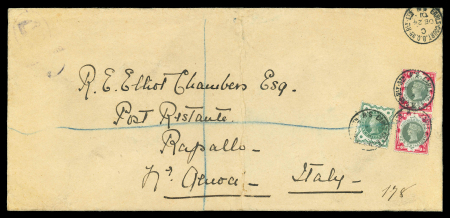 R. E. Elliot Chambers Esq.
Post Ristante
Rapallo
Nr. Genoa
Italy
178